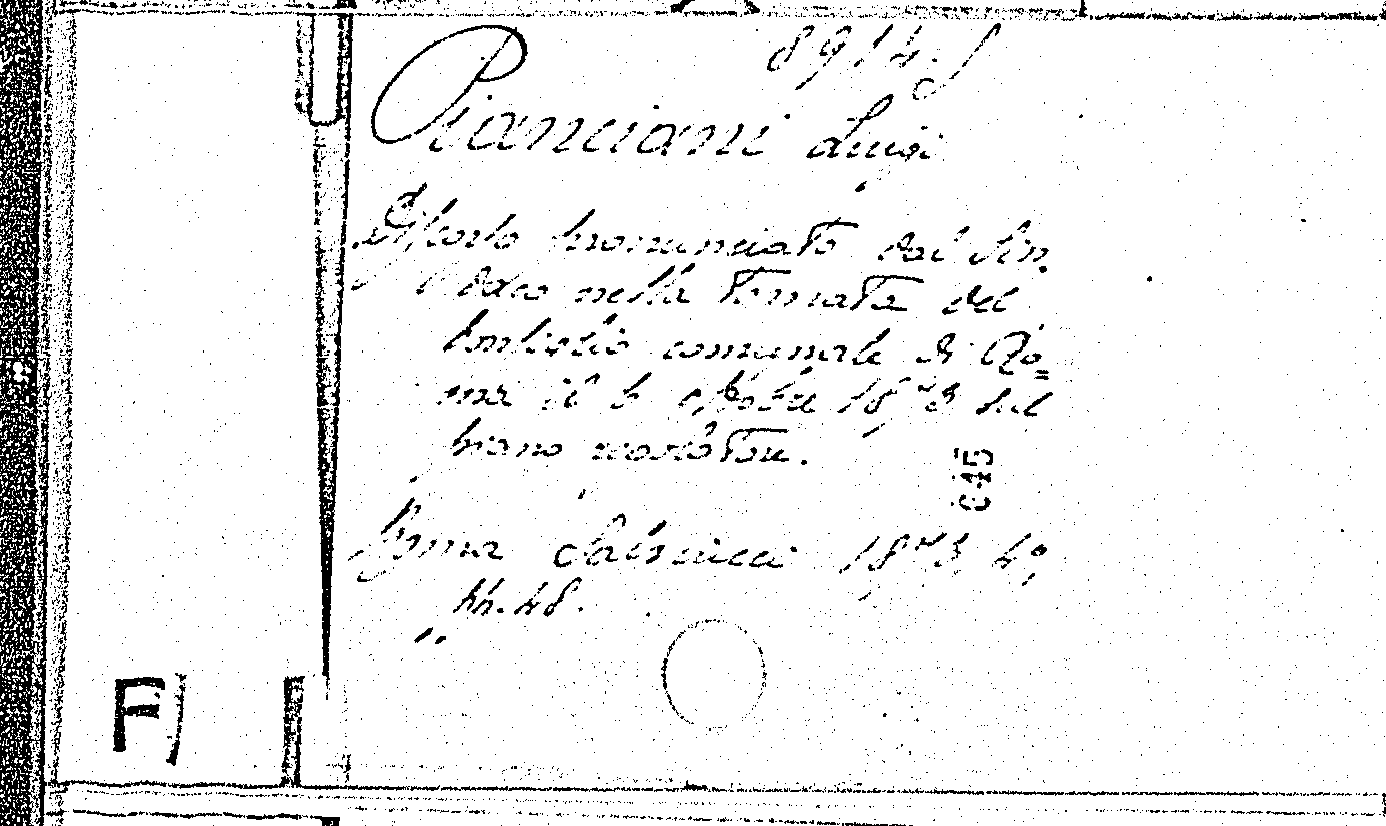 8914.J
Pianciani Luigi
Discorso pronunciato dal Sin-
daco nella tornata del
Consiglio comunale di Ro=
ma il 6 ottobre 1873 sul
piano regolatore.
645
Roma Salviucci 1873, 4º,
pp. 48.
F)